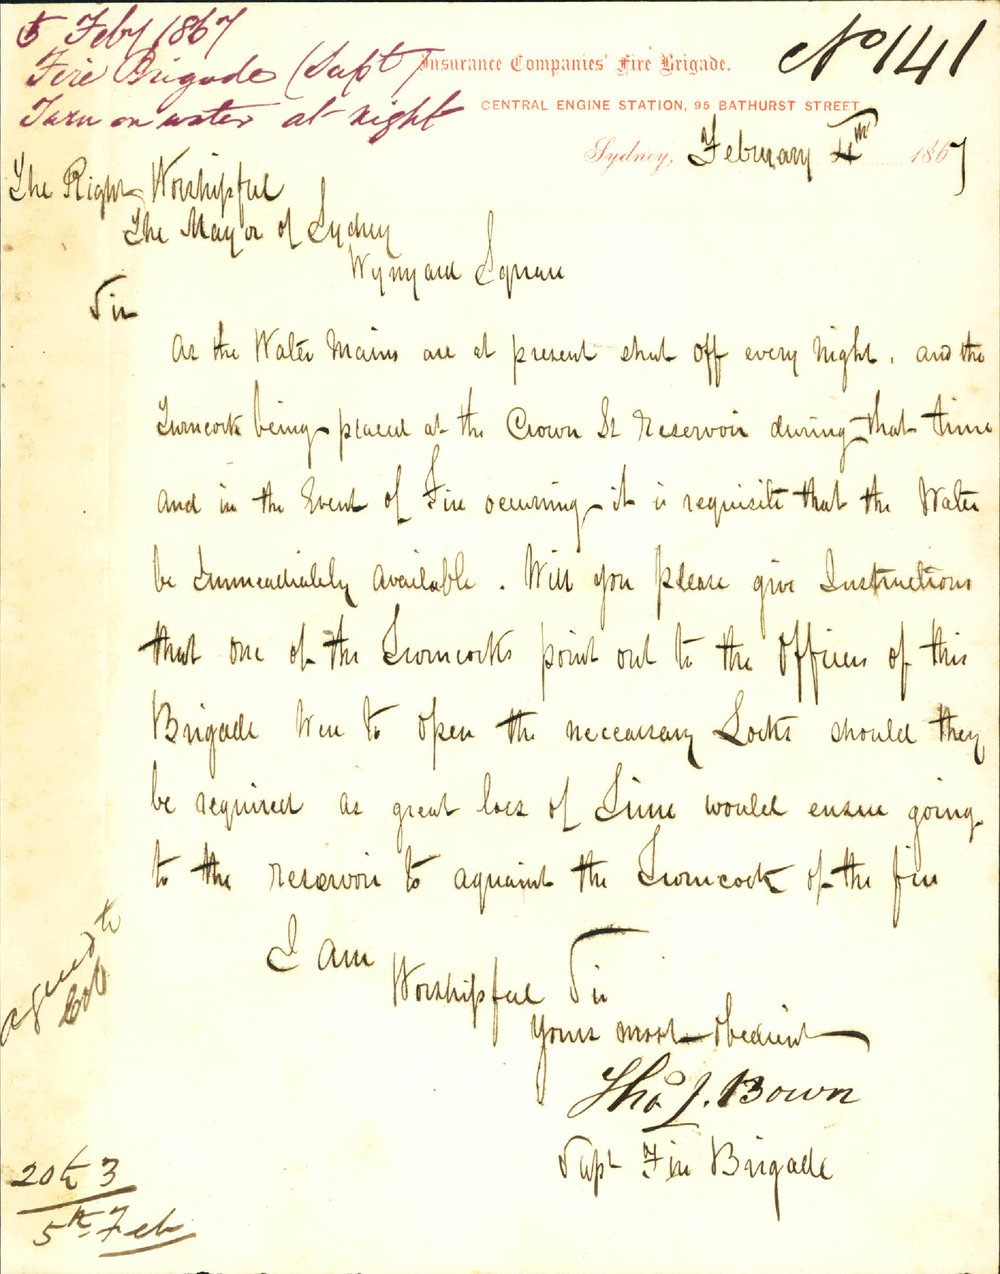 5 Feby 1867
Fire Brigade (Supt)
Turn on water at night
No 141
Insurance Companies' Fire Brigade.
CENTRAL ENGINE STATION, 95 BATHURST STREET
Sydney, February 4th 1867
The Right Worshipful
The Mayor of Sydney
Wynyard Square
Sir
As the Water Mains are at present shut off every night, and the
Turncock being placed at the Crown St Reservoir during that time
and in the Event of Fire occurring it is requisite that the Water
be Immediately available. Will you please give Instructions
that one of the Turncocks point out to the Officers of this
Brigade how to open the necessary Locks should they
be required as great loss of Time would ensue going
to the reservoir to aquaint the Turncock of the fire
I am
Worshipful Sir
Yours most obedient
Thos J. Bown
Supt Fire Brigade
agreed to
20th 3
5th Feb